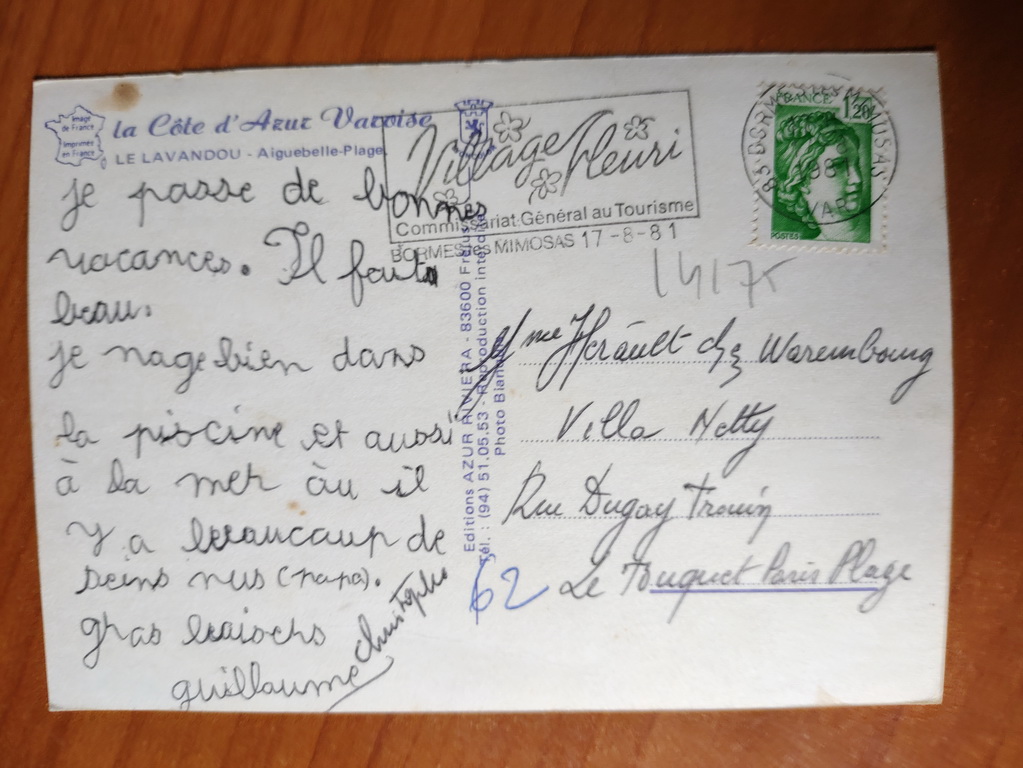 Image
de France
Imprimée
en France
la Côte d'Azur Varoise
LE LAVANDOU - Aiguebelle-Plage
je passe de bonnes
vacances. Il fait
beau.
je nage bien dans
la piscine et aussi
à la mer àu il
y a beaucaup de
seins nus (papa).
gros baisers
guillaume Christophe
Editions AZUR RIVIERA - 83600 Fréjus
Tél. : (94) 51.05.53 - Reproduction interdite
Photo
Village Fleuri
Commissariat Général au Tourisme
BORMES les MIMOSAS 17-8-81
83 BORMES LES MIMOSAS
VAR
FRANCE
1,20
POSTES
14175
Mme Hérault chez Warembourg
Villa Netty
Rue Dugay Trouin
62 Le Touquet Paris Plage